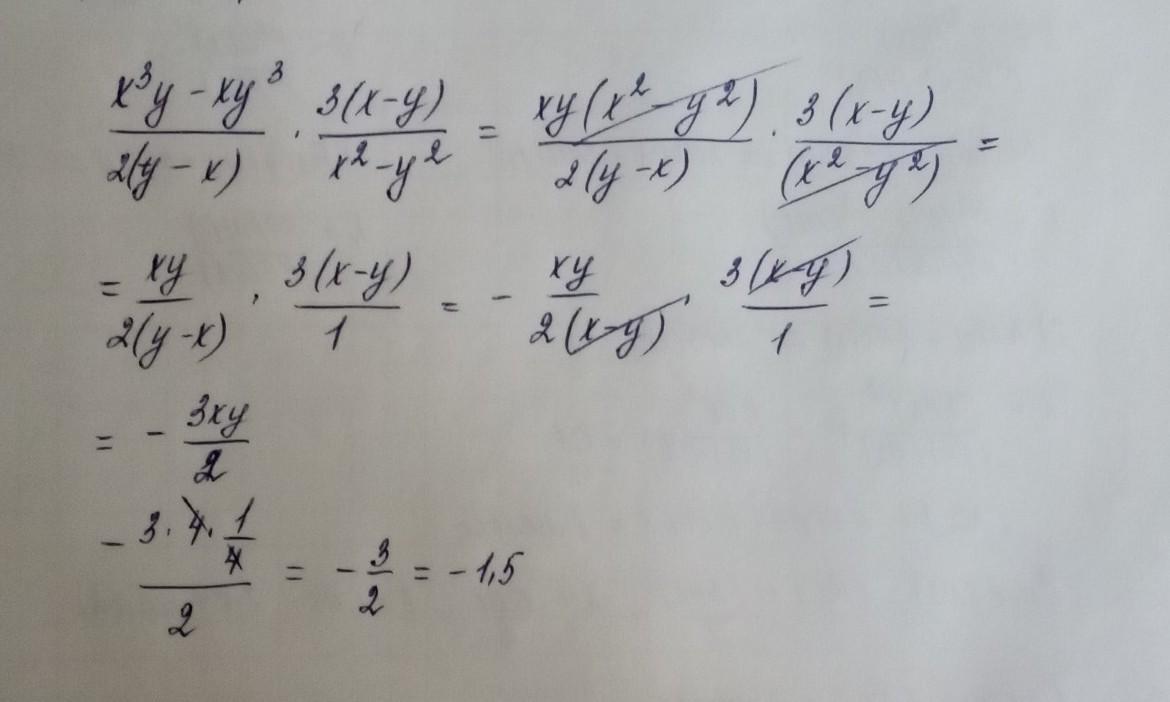 (x³y - xy³)/(2(y - x)) · (3(x-y))/(x² - y²) = (xy(x² - y²))/(2(y - x)) · (3(x-y))/((x² - y²)) =
= (xy)/(2(y-x)) · (3(x-y))/1 = - (xy)/(2(x-y)) · (3(x-y))/1 =
= - (3xy)/2
- (3 · 4 · 1/4)/2 = - 3/2 = - 1,5